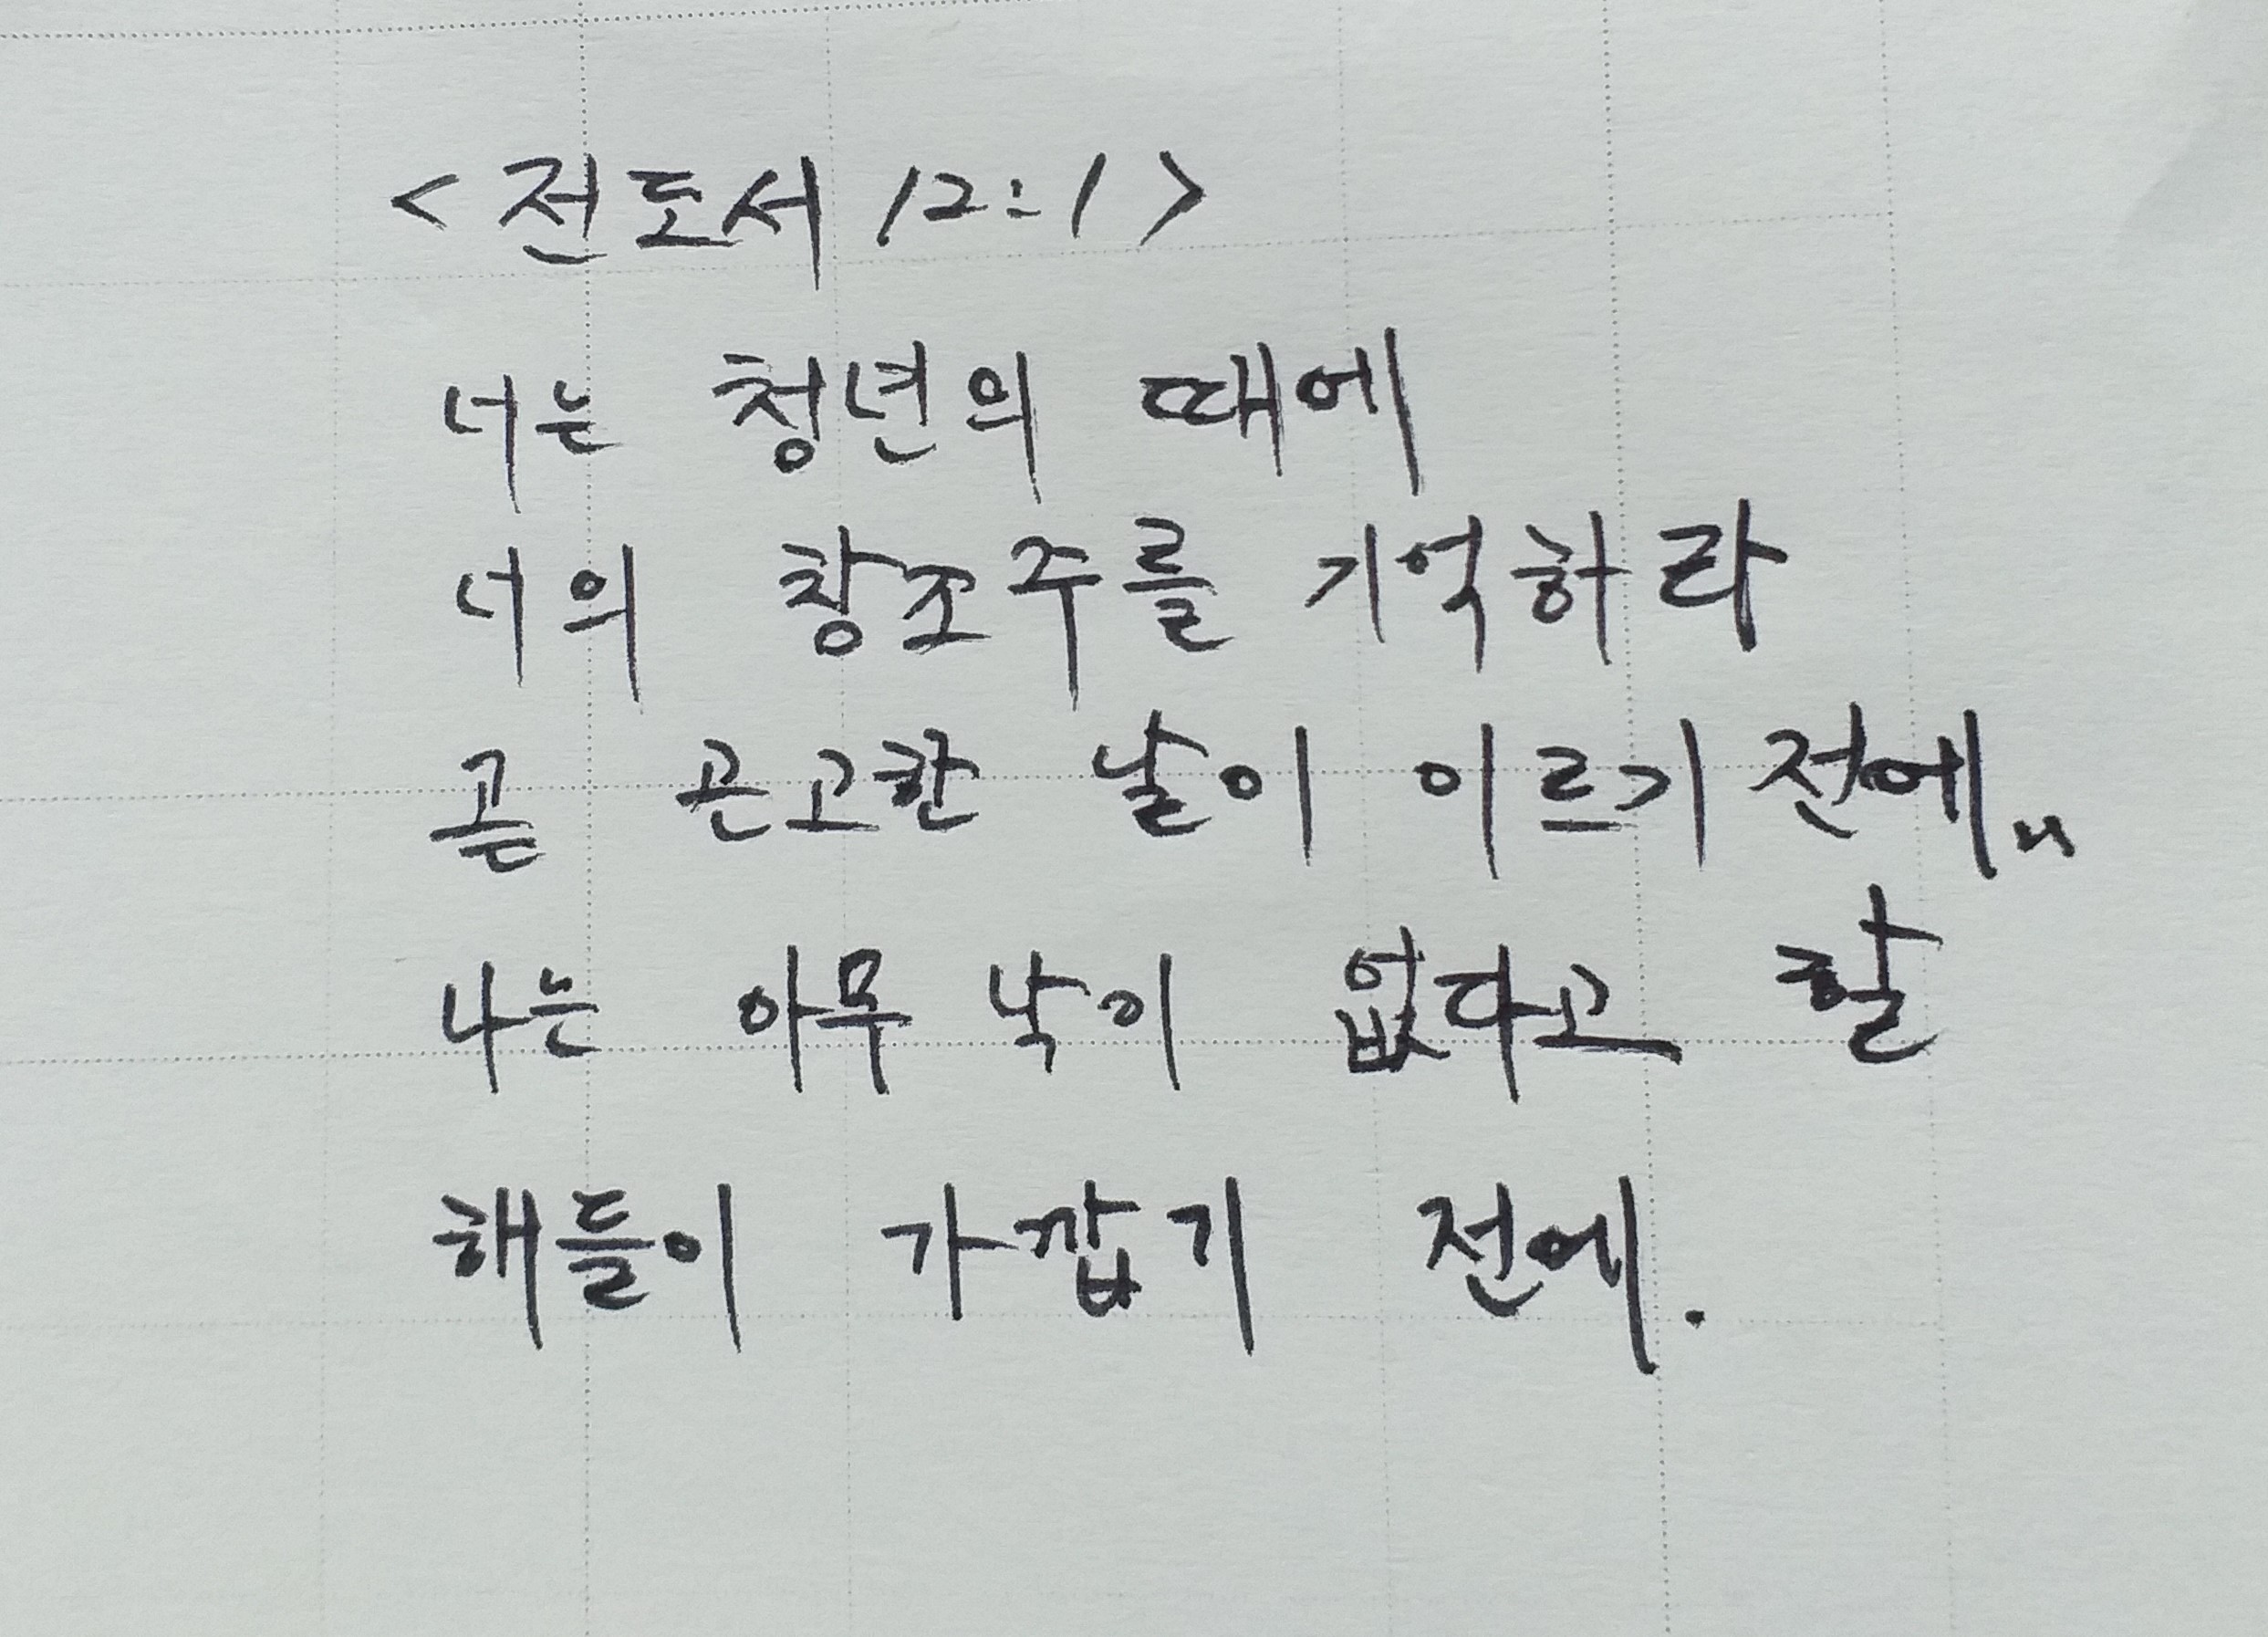 <전도서 12:1>
너는 청년의 때에
너의 창조주를 기억하라
곧 곤고한 날이 이르기 전에,,
나는 아무 낙이 없다고 할
해들이 가깝기 전에.